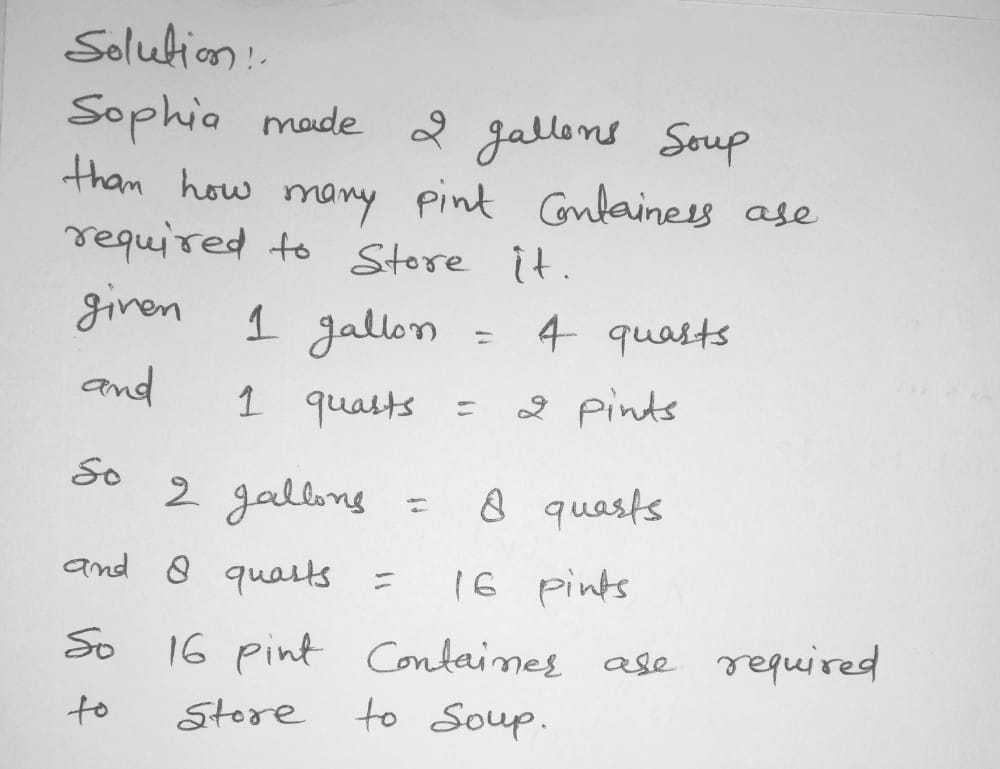 Solution:.
Sophia made 2 gallons Soup
than how many pint Containers are
required to Store it.
given 1 gallon = 4 quarts
and 1 quarts = 2 pints
So 2 gallons = 8 quarts
and 8 quarts = 16 pints
So 16 pint Container are required
to Store to Soup.